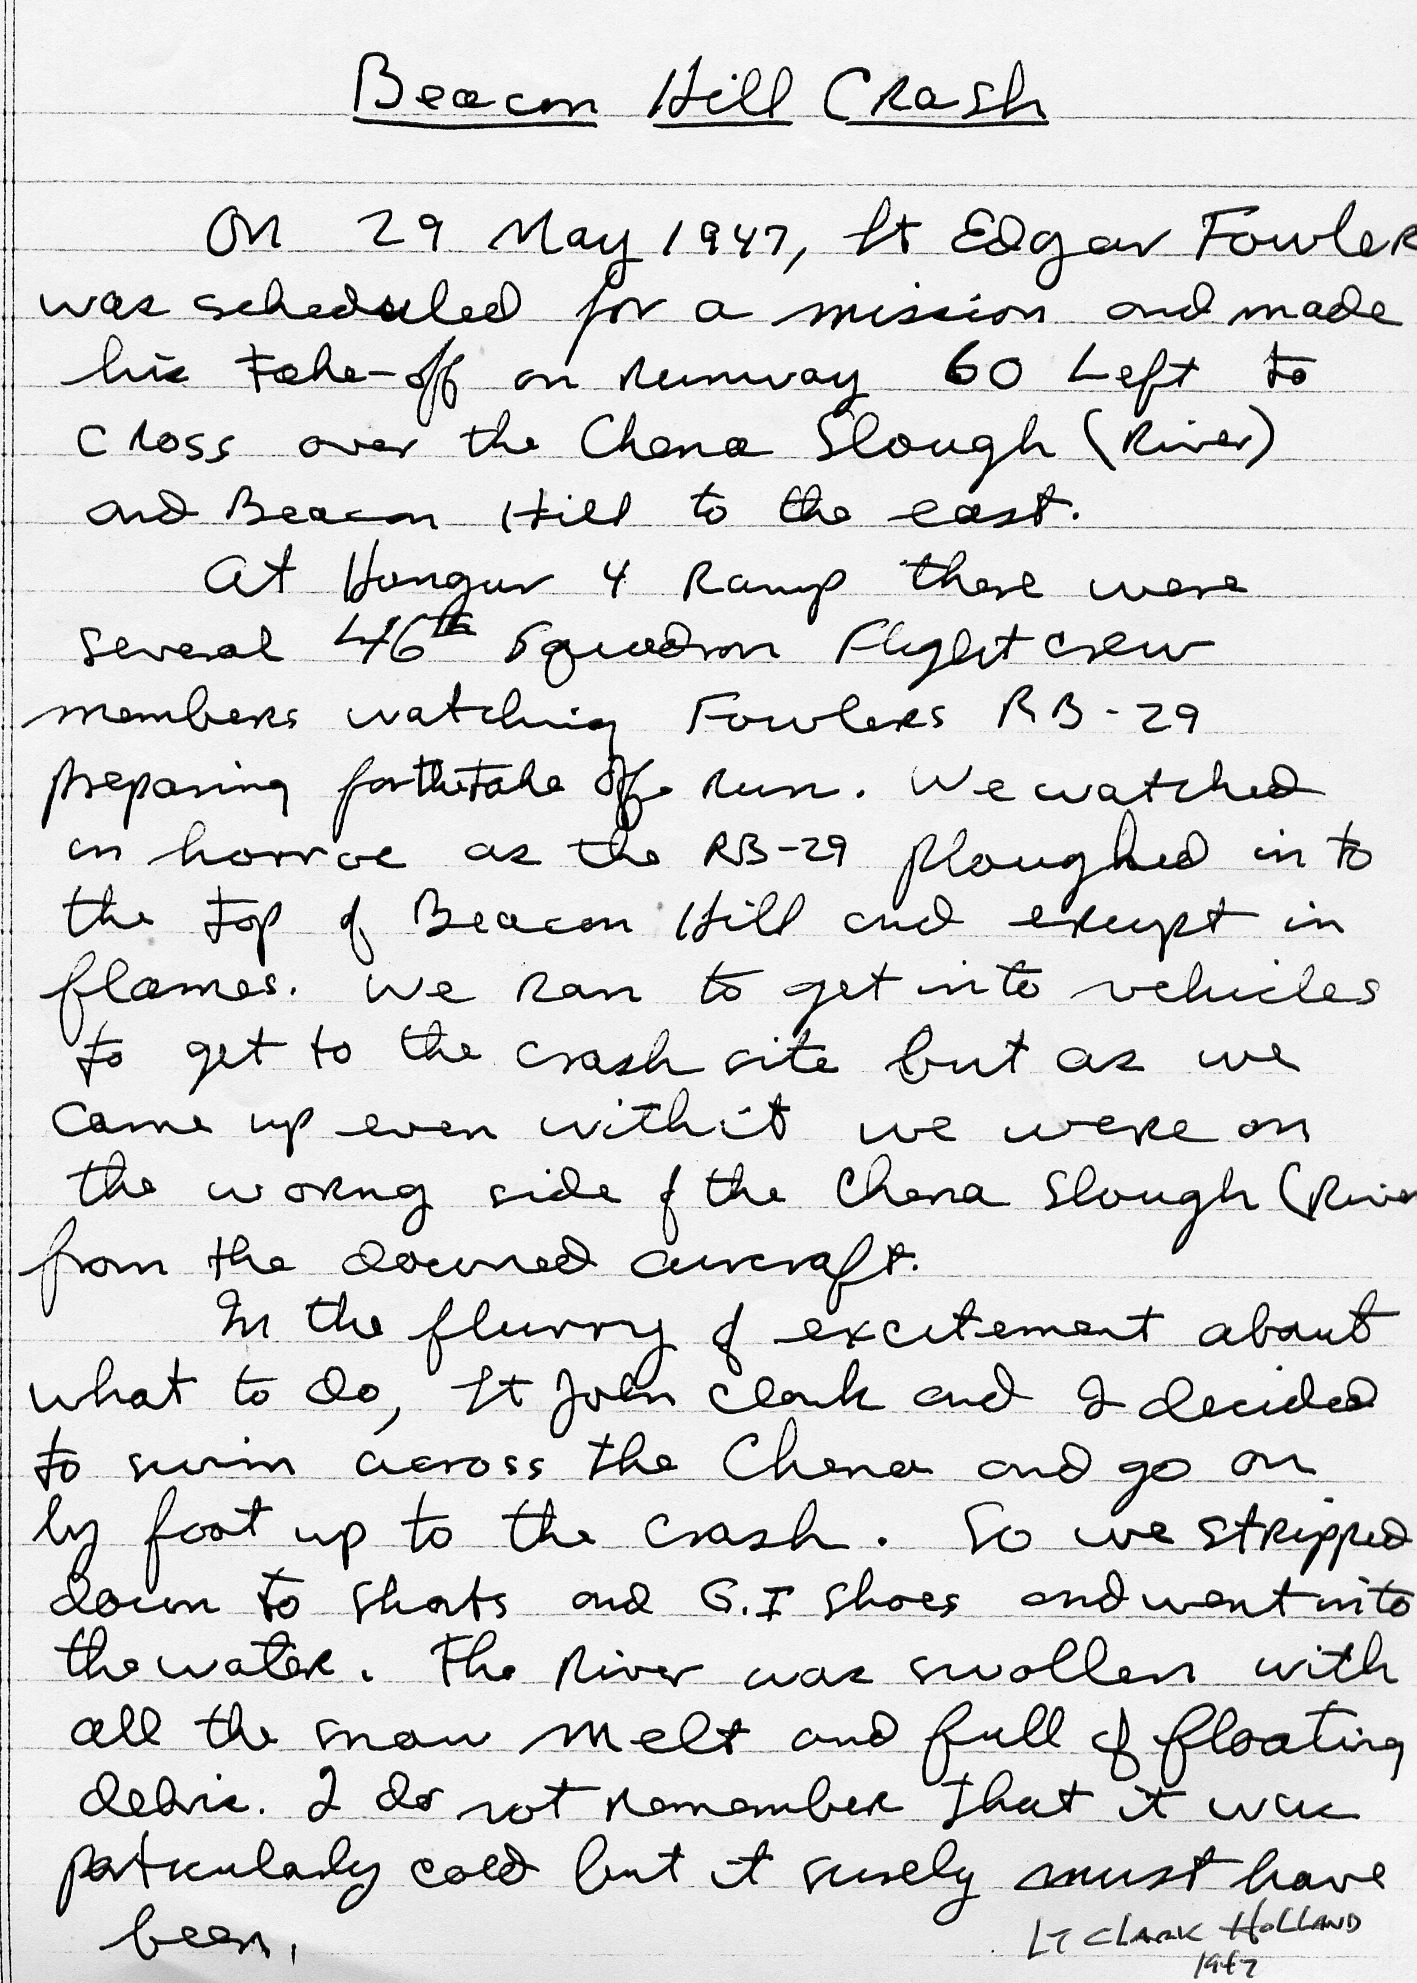 Beacon Hill Crash
On 29 May 1947, Lt Edgar Fowler
was scheduled for a mission and made
his take-off on Runway 60 Left to
cross over the Chena Slough (River)
and Beacon Hill to the east.
At Hangar 4 Ramp there were
several 46th Squadron Flight crew
members watching Fowlers RB-29
preparing for the take off run. We watched
in horror as the RB-29 ploughed into
the top of Beacon Hill and erupt in
flames. We ran to get into vehicles
to get to the crash site but as we
came up even with it we were on
the worng side of the Chena Slough (River
from the downed aircraft.
In the flurry of excitement about
what to do, Lt John Clark and I decided
to swim across the Chena and go on
by foot up to the crash. So we stripped
down to shorts and G.I shoes and went into
the water. The River was swollen with
all the snow melt and full of floating
debris. I do not remember that it was
particularly cold but it surely must have
been.
LT CLARK HOLLAND
1947